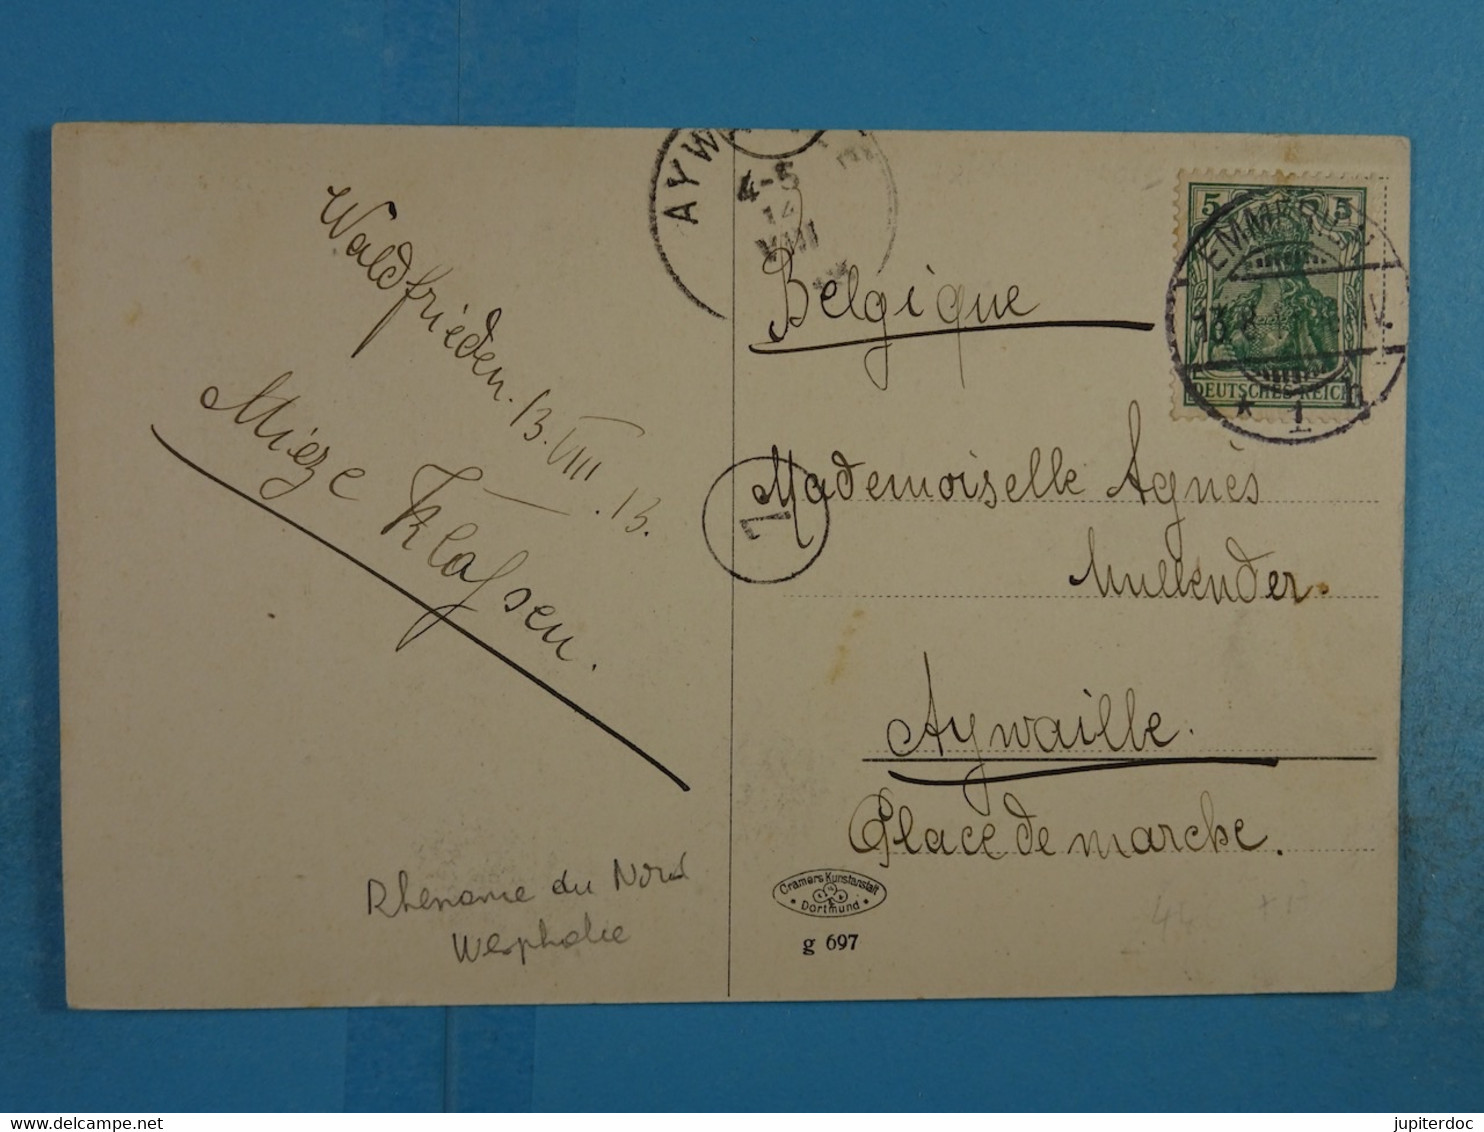 Waldfrieden. 13. VIII. 13.
Mieze Klaſsen.
Rhenanie du Nord
Wesphalie
AYWA
4-5
14
VIII
Belgique
5 5
EMMERICH
13 8
DEUTSCHES REICH
* 1 n
1
Mademoiselle Agnès
Mullender.
Aywaille.
Place de marche.
Cramers Kunstanstalt
Dortmund
g 697
jupiterdoc